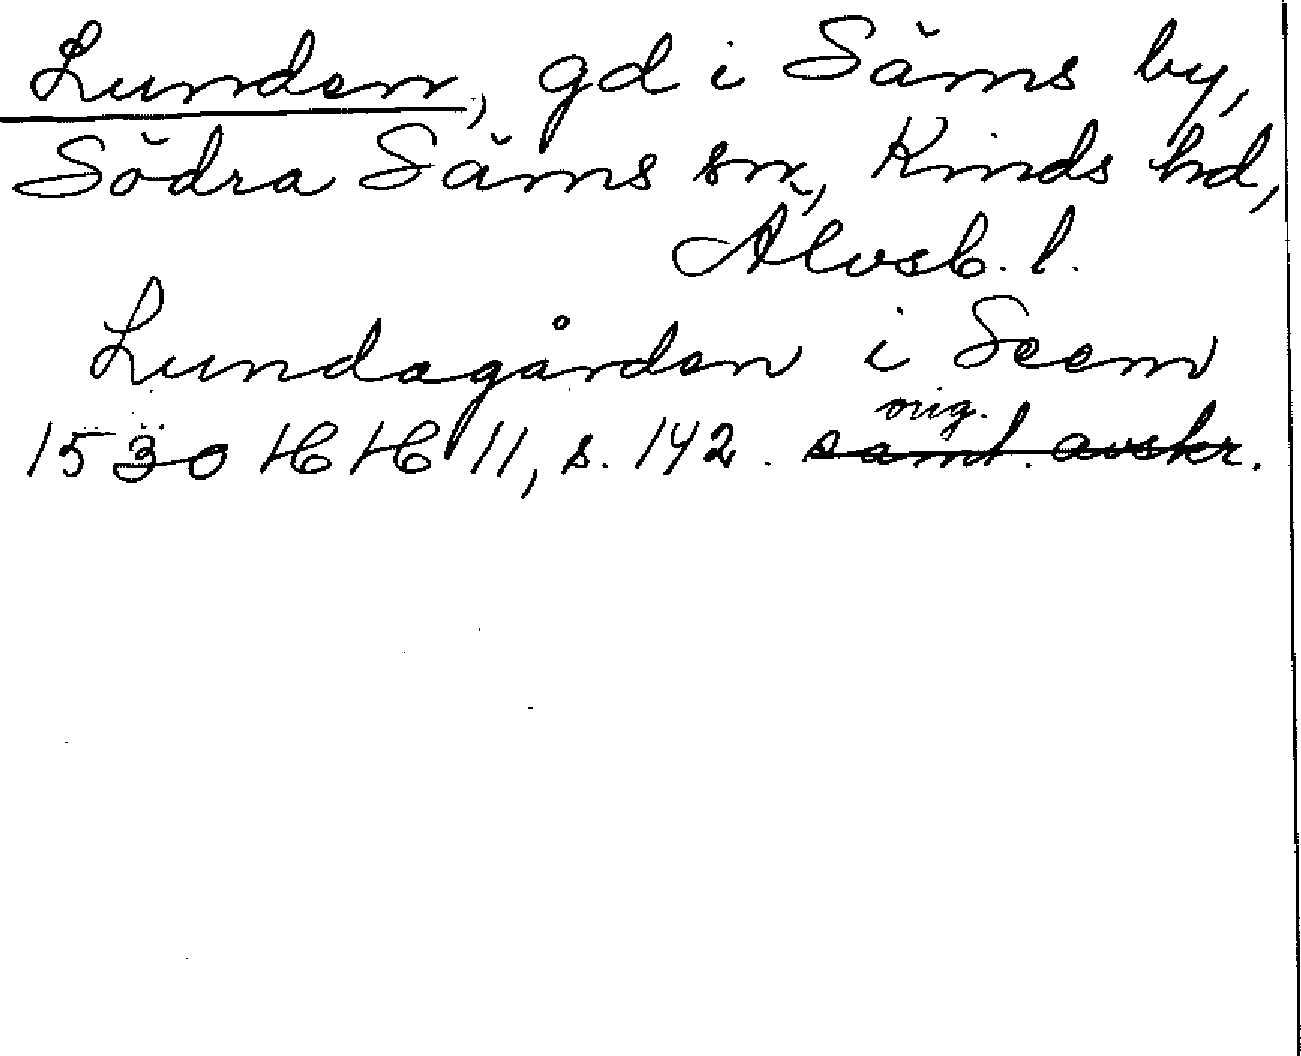 Lunden, gd i Säms by,
Södra Säms sn, Kinds hd,
Älvsb. l.
Lundagården i Seem
orig.
1530 HH 11, s. 142. samt. avskr.